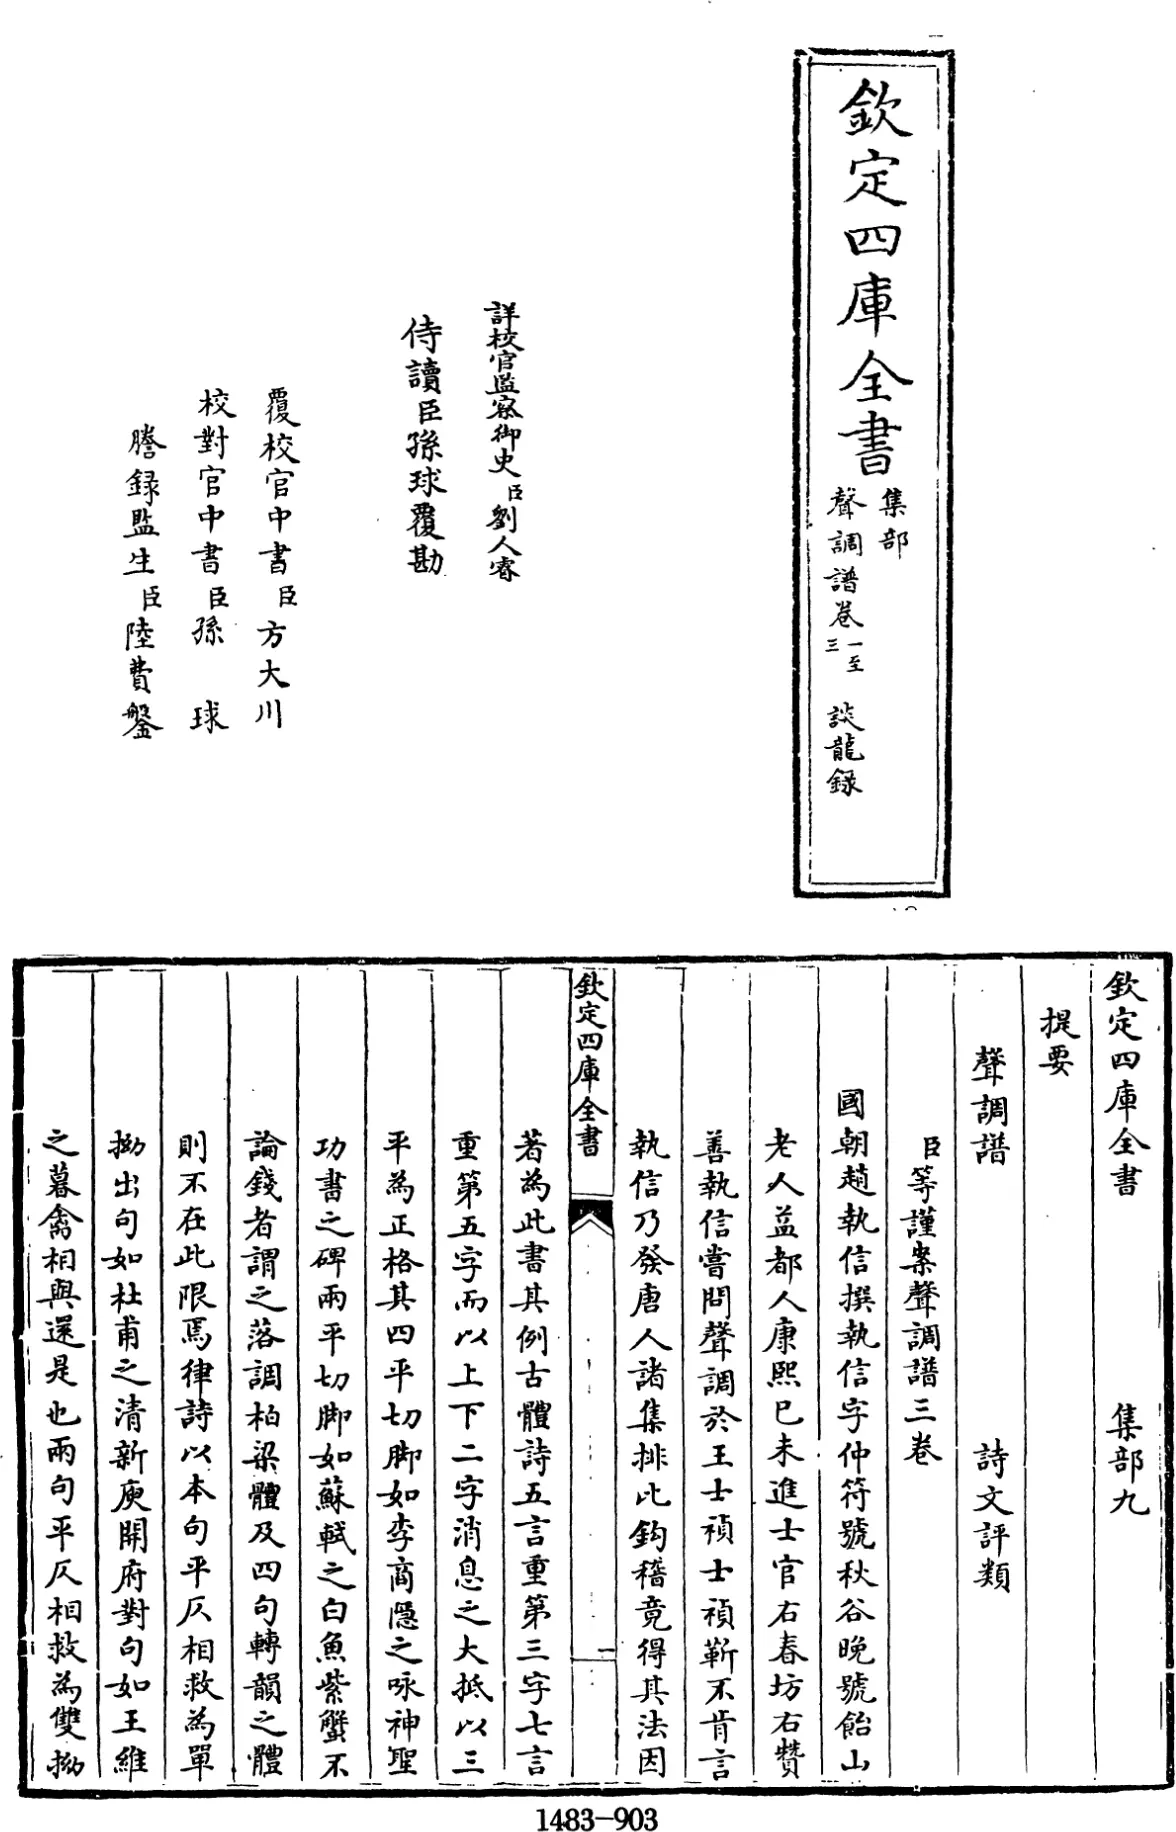 欽定四庫全書
集部
聲調譜卷一至三 談龍録
詳校官監察御史臣劉人睿
侍讀臣孫球覆勘
覆校官中書臣方大川
校對官中書臣孫球
謄録監生臣陸費鎜
欽定四庫全書 集部九
提要
聲調譜 詩文評類
臣等謹案聲調譜三卷
國朝趙執信撰執信字仲符號秋谷晚號飴山
老人益都人康熙已未進士官右春坊右贊
善執信嘗問聲調於王士禎士禎靳不肯言
執信乃發唐人諸集排比鈎稽竟得其法因
欽定四庫全書
一
著為此書其例古體詩五言重第三字七言
重第五字而以上下二字消息之大抵以三
平為正格其四平切脚如李商隱之咏神聖
功書之碑兩平切脚如蘇軾之白魚紫蟹不
論錢者謂之落調柏梁體及四句轉韻之體
則不在此限焉律詩以本句平仄相救為單
拗出句如杜甫之清新庾開府對句如王維
之暮禽相與還是也兩句平仄相救為雙拗
1483-903